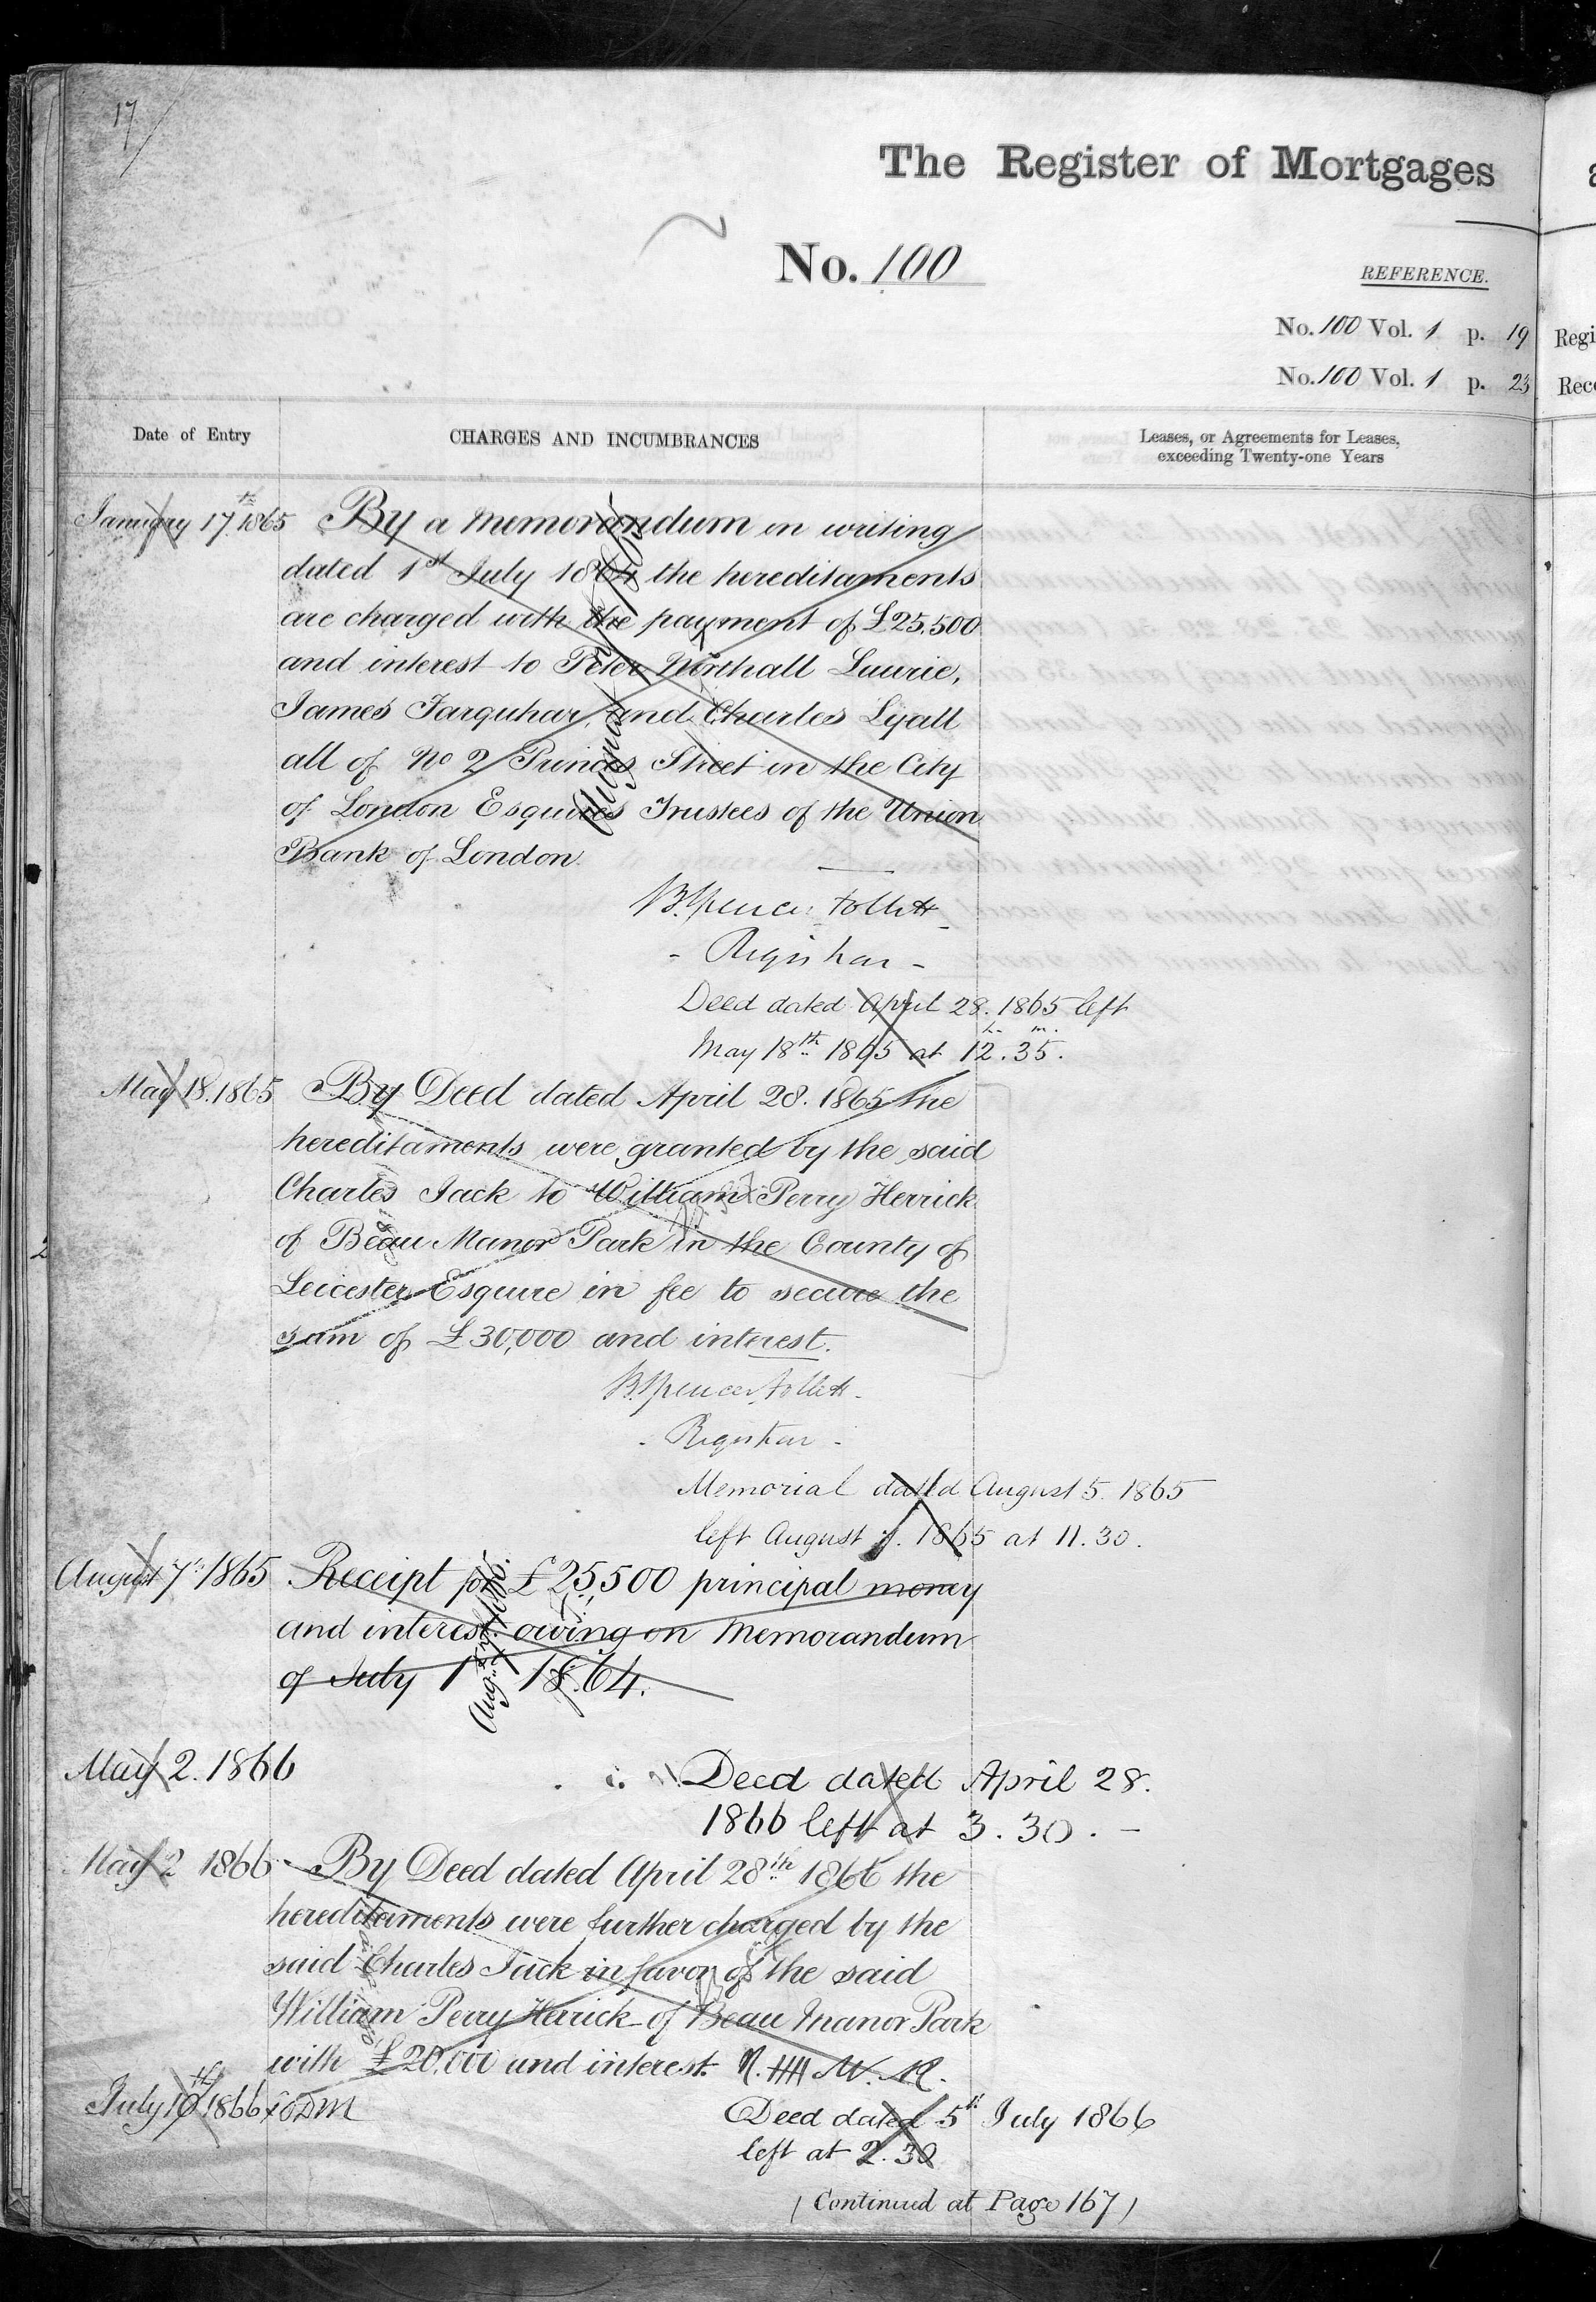 17
The Register of Mortgages
No. 100
REFERENCE.
No. 100 Vol. 1 p. 19
No. 100 Vol. 1 p. 23
Regi
Rece
Date of Entry
CHARGES AND INCUMBRANCES
Leases, or Agreements for Leases,
exceeding Twenty-one Years
January 17th 1865 By a Memorandum in writing
dated 1st July 1864 the hereditaments
are charged with the payment of £25.500
and interest to Peter Northall Laurie,
James Farquhar, and Charles Lyall
all of No 2 Princes Street in the City
of London Esquires Trustees of the Union
Bank of London.
B. Spencer Follett
- Registrar -
Deed dated April 28. 1865 left
May 18th 1865 at 12h. 35m.
May 18. 1865 By Deed dated April 28. 1865 the
hereditaments were granted by the said
Charles Jack to William Perry Herrick
of Beau Manor Park in the County of
Leicester Esquire in fee to secure the
sum of £30,000 and interest.
B. Spencer Follett.
- Registrar -
Memorial dated August 5. 1865
left August 7. 1865 at 11.30.
August 7th 1865 Receipt for £25,500 principal money
and interest owing on Memorandum
of July 1st 1864.
May 2. 1866
Deed dated April 28.
1866 left at 3.30. -
May 2 1866 By Deed dated April 28th 1866 the
hereditaments were further charged by the
said Charles Jack in favor of the said
William Perry Herrick of Beau Manor Park
with £20,000 and interest.
July 10th 1866
Deed dated 5th July 1866
left at 2.30
(Continued at Page 167)